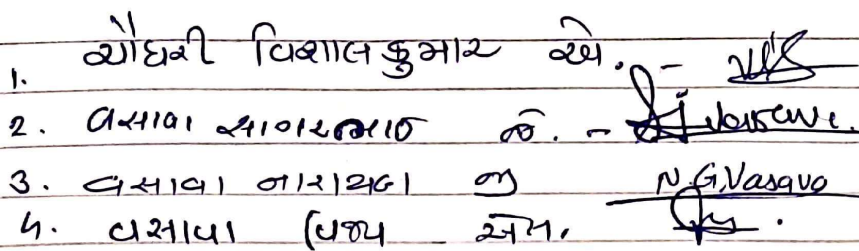 1. ચૌધરી વિશાલકુમાર એ. -
2. વસાવા સાગરભાઈ જે. - Vasava.
3. વસાવા નારાયણ જી N.G.Vasava
4. વસાવા વિજય એમ.